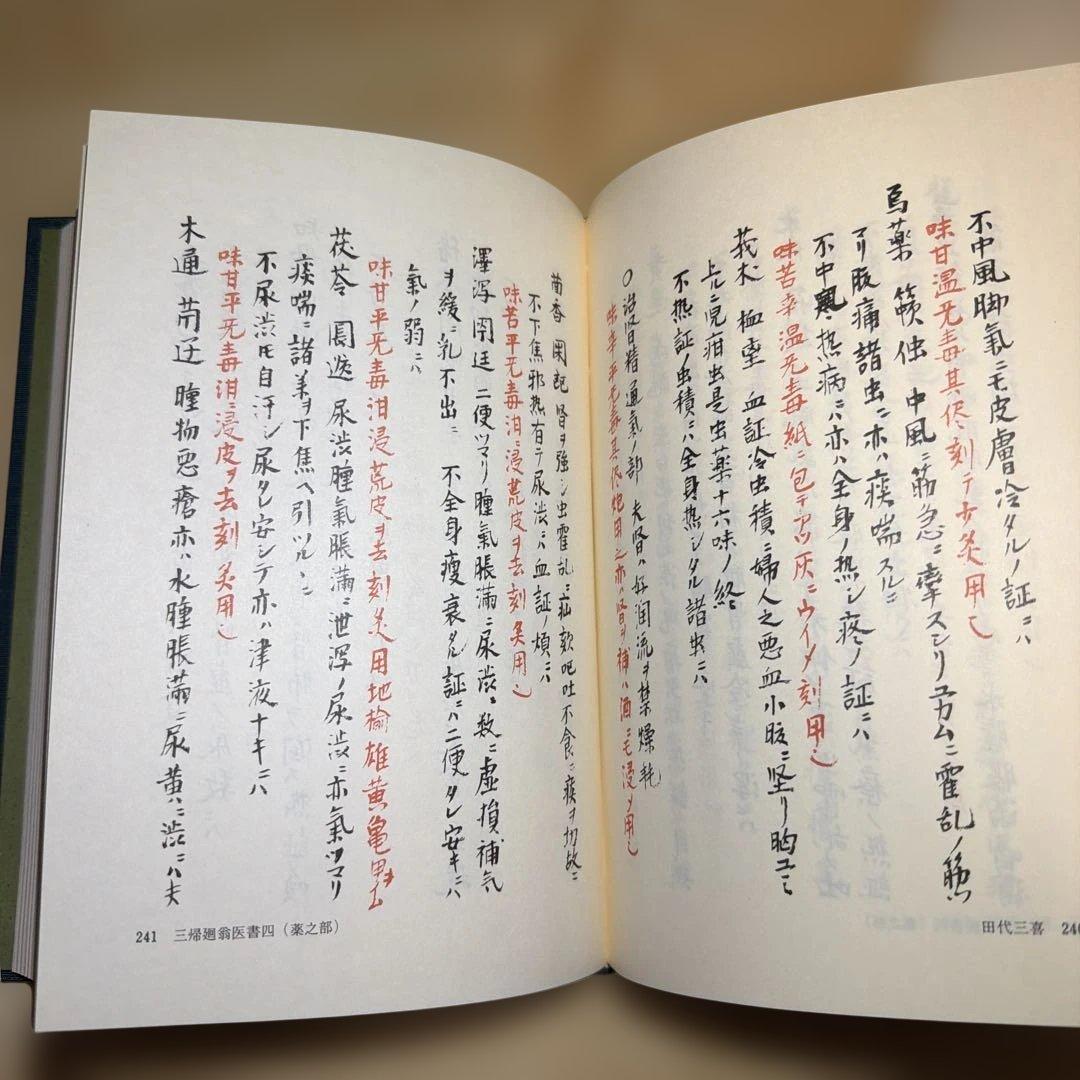 不中風脚氣ニモ皮膚冷タルノ証ニハ
味甘温无毒其侭刻テ少炙用也
烏薬 中風ニ筋急ニ牽スンリユカムニ霍乱ノ筋
マリ腹痛諸虫ニ亦ハ痰喘スルニ
不中熱病ニハ亦ハ全身ノ熱シ疼ノ証ニハ
味苦辛温无毒紙ニ包テアツ灰ニウイメ刻用也
莪朮 血証冷虫積ニ婦人之悪血小腹ニ堅リ胸ユニミ
上ルニ児疳虫是虫薬十六味ノ終
不熱証ノ虫積ニハ全身熱シタル諸虫ニハ
〇治腎精通氣ノ部 夫腎ハ好潤流ヲ禁燥耗
味辛平无毒其侭炮用之亦ハ腎ヲ補ハ酒ニモ浸メ用也
茴香 腎ヲ強シ虫霍乱ニ疝欬吧吐不食ニ痰ヲ切故ニ
不下焦邪熱有テ尿渋ニハ血証ノ煩ニハ
味苦平无毒泔ニ浸荒皮ヲ去刻炙用也
澤瀉 二便ツマリ腫氣脹満ニ尿渋ニ数ニ虚損補気
ヲ緩ニ乳不出ニ 不全身痩衰タル証ニハ二便タレ安キニハ
氣ノ弱ニハ
味甘平无毒泔浸荒皮ヲ去刻炙用地楡雄黄亀甲ヲ
茯苓 尿渋腫氣脹満ニ泄瀉ノ尿渋ニ亦氣ツマリ
痰喘ニ諸薬ヲ下焦ヘ引ツルニ
不尿渋氏自汗シ尿タレ安シテ亦ハ津液十キニハ
味甘平无毒泔ニ浸皮ヲ去刻炙用也
木通 腫物悪瘡亦ハ水腫脹満ニ尿黄ハニ渋ニハ夫
241 三帰廻翁医書四（薬之部）
田代三喜 240